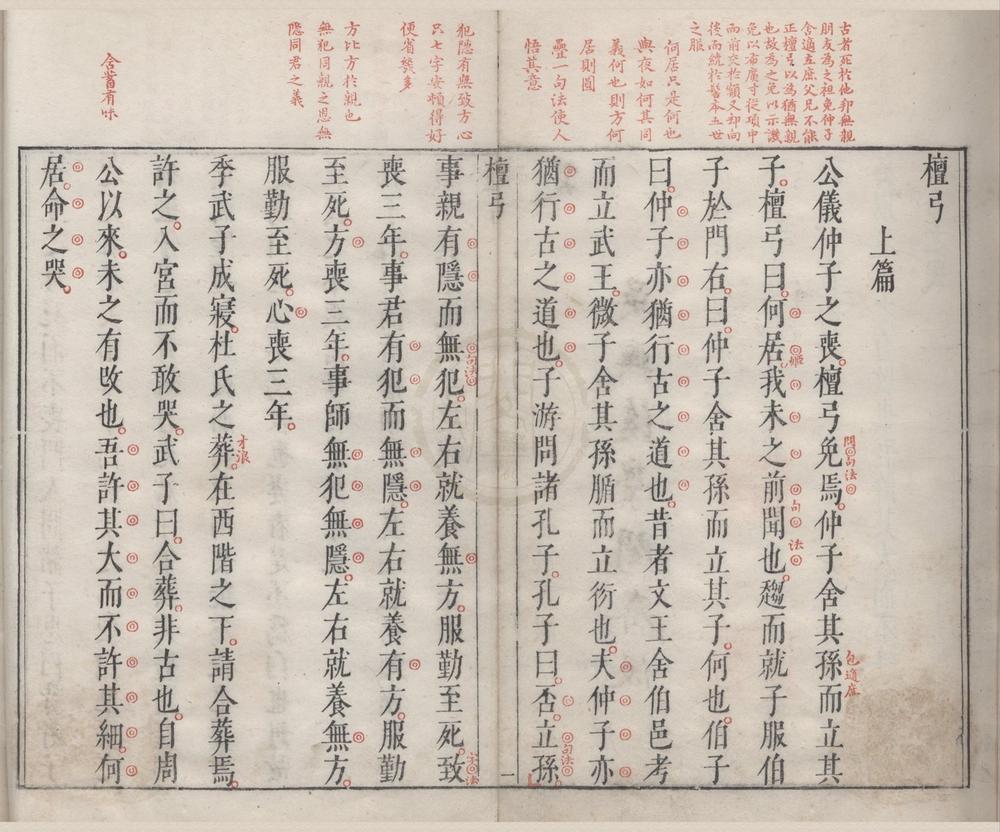 古者死於他邦無親
朋友為之袒免仲子
舍適立庶父兄不能
正檀弓以為猶無親
也故為之免以示譏
免以布廣寸從項中
而前交於額又却向
後而繞於髻本五世
之服
何居只是何也
與夜如何其同
義何也則方何
居則圓
疊一句法使人
悟其意
檀弓
上篇
公儀仲子之喪。檀弓免焉。仲子舍其孫而立其
問
句法
包適庶
子。檀弓曰。何居。我未之前聞也。趨而就子服伯
姬
句
法
子於門右。曰。仲子舍其孫而立其子。何也。伯子
曰。仲子亦猶行古之道也。昔者文王舍伯邑考
而立武王。微子舍其孫腯而立衍也。夫仲子亦
猶行古之道也。子游問諸孔子。孔子曰。否。立孫。
句法
檀弓
一
犯隱有無致方心
只七字安頓得好
便省幾多
方比方於親也
無犯同親之恩無
隱同君之義
含蓄有味
事親有隱而無犯。左右就養無方。服勤至死。致
句法
字法
喪三年。事君有犯而無隱。左右就養有方。服勤
至死。方喪三年。事師無犯無隱。左右就養無方。
服勤至死。心喪三年。
季武子成寢。杜氏之葬。在西階之下。請合葬焉。
才浪
許之。入宮而不敢哭。武子曰。合葬。非古也。自周
公以來。未之有改也。吾許其大而不許其細。何
居。命之哭。